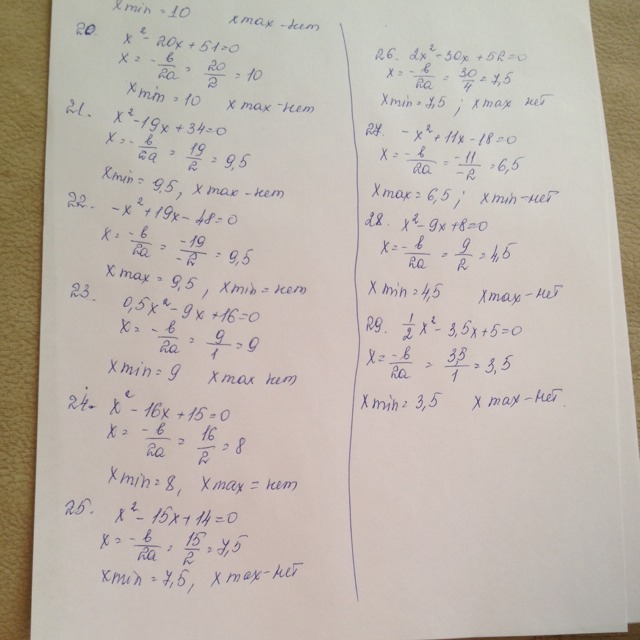 x min = 10   x max - нет
20. x² - 20x + 51 = 0
x = -b/2a = 20/2 = 10
x min = 10   x max - нет
21. x² - 19x + 34 = 0
x = -b/2a = 19/2 = 9,5
x min = 9,5, x max - нет
22. -x² + 19x - 48 = 0
x = -b/2a = -19/-2 = 9,5
x max = 9,5, x min = нет
23. 0,5x² - 9x + 16 = 0
x = -b/2a = 9/1 = 9
x min = 9   x max нет
24. x² - 16x + 15 = 0
x = -b/2a = 16/2 = 8
x min = 8, x max = нет
25. x² - 15x + 14 = 0
x = -b/2a = 15/2 = 7,5
x min = 7,5, x max - нет
26. 2x² - 30x + 52 = 0
x = -b/2a = 30/4 = 7,5
x min = 7,5 ; x max нет
27. -x² + 11x - 18 = 0
x = -b/2a = -11/-2 = 6,5
x max = 6,5 ; x min - нет
28. x² - 9x + 8 = 0
x = -b/2a = 9/2 = 4,5
x min = 4,5   x max - нет
29. 1/2 x² - 3,5x + 5 = 0
x = -b/2a = 3,5/1 = 3,5
x min = 3,5   x max - нет.